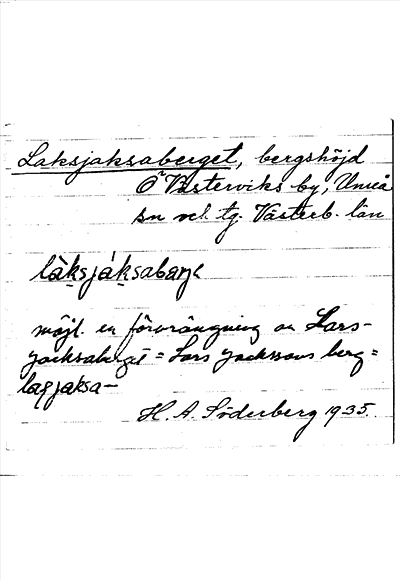 Laksjaksaberget, bergshöjd
Ö Västerviks by, Umeå
sn och tg. Västerb. län
làksjáksabarje
möjl. en förvrängning av Lars-
jacksaberget = Lars Jackssons berg =
lasjaksa-
H. A. Söderberg 1935.